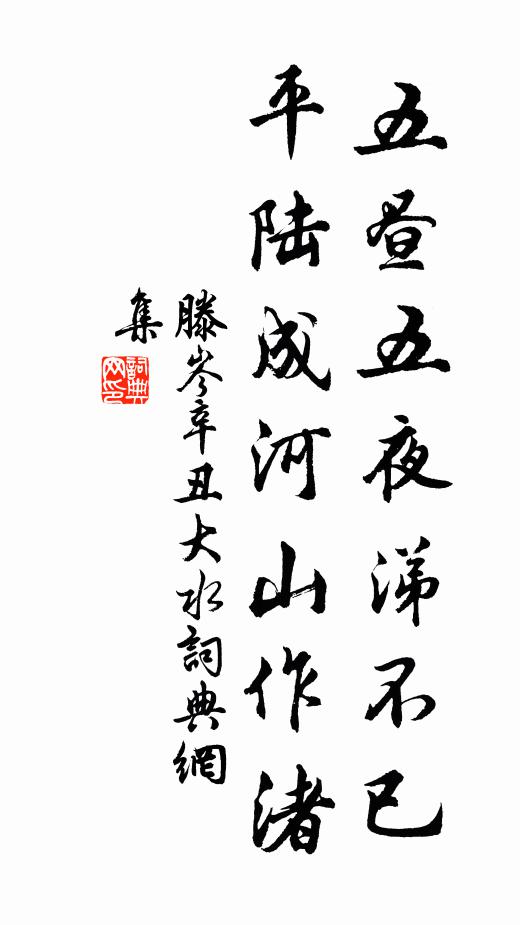 五昼五夜涕不已
平陆成河山作渚
滕岑辛丑大水詞典網
集
詞典网印